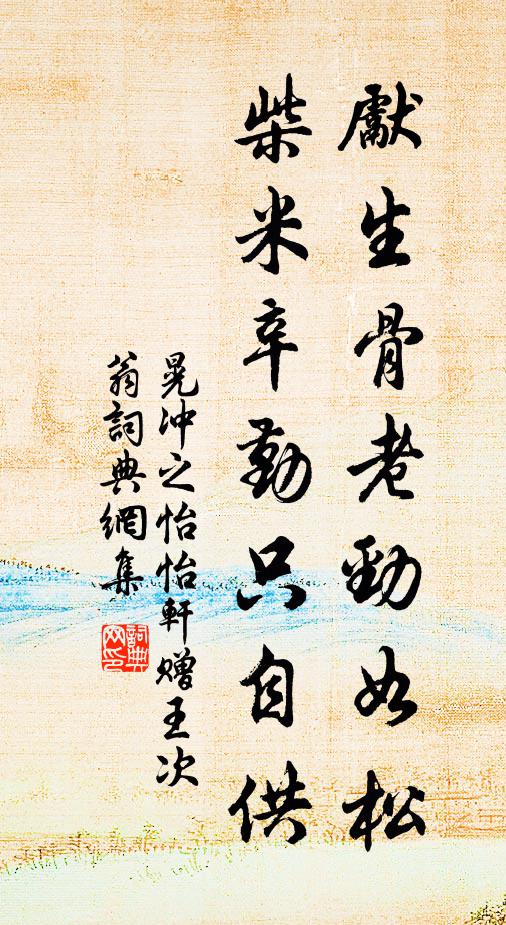 獻生骨老勁如松
柴米辛勤只自供
晁沖之怡怡軒贈王次
翁詞典網集
詞典网印